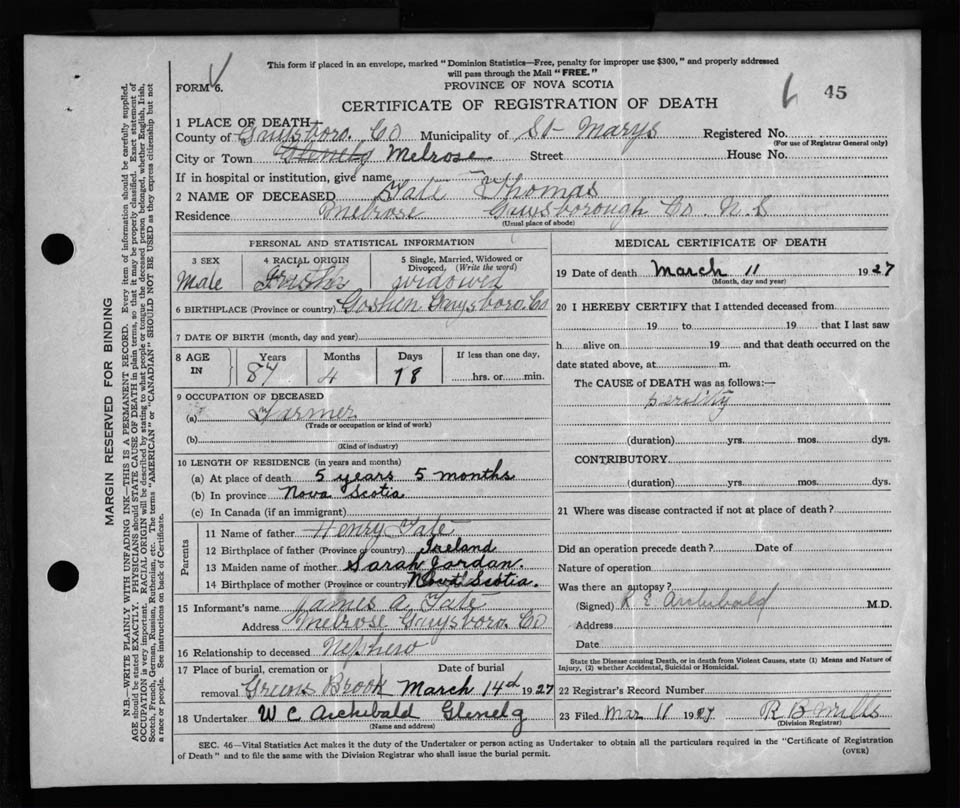 This form if placed in an envelope, marked "Dominion Statistics—Free, penalty for improper use $300," and properly addressed
will pass through the Mail "FREE."
FORM 6.
PROVINCE OF NOVA SCOTIA
CERTIFICATE OF REGISTRATION OF DEATH
45
1 PLACE OF DEATH
County of Guysboro. Co Municipality of St Marys Registered No.
(For use of Registrar General only)
City or Town Glenelg Melrose Street House No.
If in hospital or institution, give name
2 NAME OF DECEASED Tate Thomas
Residence Melrose Guysborough Co. N.S
(Usual place of abode)
PERSONAL AND STATISTICAL INFORMATION
3 SEX 4 RACIAL ORIGIN 5 Single, Married, Widowed or Divorced, (Write the word)
Male Irish widowed
6 BIRTHPLACE (Province or country) Goshen Guysboro. Co
7 DATE OF BIRTH (month, day and year)
8 AGE IN Years Months Days If less than one day,
87 4 18 hrs. or min.
9 OCCUPATION OF DECEASED
(a) Farmer
(Trade or occupation or kind of work)
(b)
(Kind of industry)
10 LENGTH OF RESIDENCE (in years and months)
(a) At place of death 5 years 5 months
(b) In province Nova Scotia
(c) In Canada (if an immigrant)
Parents
11 Name of father Henry Tate
12 Birthplace of father (Province or country) Ireland
13 Maiden name of mother Sarah Jordan.
14 Birthplace of mother (Province or country) Nova Scotia.
15 Informant's name James A. Tate
Address Melrose Guysboro. Co
16 Relationship to deceased Nephew
17 Place of burial, cremation or Date of burial
removal Greens Brook March 14th 1927
18 Undertaker W C Archibald Glenelg
(Name and address)
MEDICAL CERTIFICATE OF DEATH
19 Date of death March 11 1927
(Month, day and year)
20 I HEREBY CERTIFY that I attended deceased from
19 to 19 that I last saw
h alive on 19 and that death occurred on the
date stated above, at m.
The CAUSE of DEATH was as follows:—
Senility
(duration) yrs. mos. dys.
CONTRIBUTORY
(duration) yrs. mos. dys.
21 Where was disease contracted if not at place of death?
Did an operation precede death? Date of
Nature of operation
Was there an autopsy?
(Signed) R E Archibald M.D.
Address
Date
State the Disease causing Death, or in death from Violent Causes, state (1) Means and Nature of
Injury, (2) whether Accidental, Suicidal or Homicidal.
22 Registrar's Record Number
23 Filed Mar 11 1927 R B Mills
(Division Registrar)
SEC. 46—Vital Statistics Act makes it the duty of the Undertaker or person acting as Undertaker to obtain all the particulars required in the "Certificate of Registration
of Death" and to file the same with the Division Registrar who shall issue the burial permit.
(OVER)
MARGIN RESERVED FOR BINDING
N.B.—WRITE PLAINLY WITH UNFADING INK—THIS IS A PERMANENT RECORD. Every item of information should be carefully supplied.
AGE should be stated EXACTLY. PHYSICIANS should STATE CAUSE OF DEATH in plain terms, so that it may be properly classified. Exact statement of
OCCUPATION is very important. RACIAL ORIGIN will be described by stating to what people or tongue the deceased person belonged, whether English, Irish,
Scotch, French, German, Russian, Ruthenian, etc. The terms "AMERICAN" or "CANADIAN" SHOULD NOT BE USED as they express citizenship but not
a race or people. See instructions on back of Certificate.